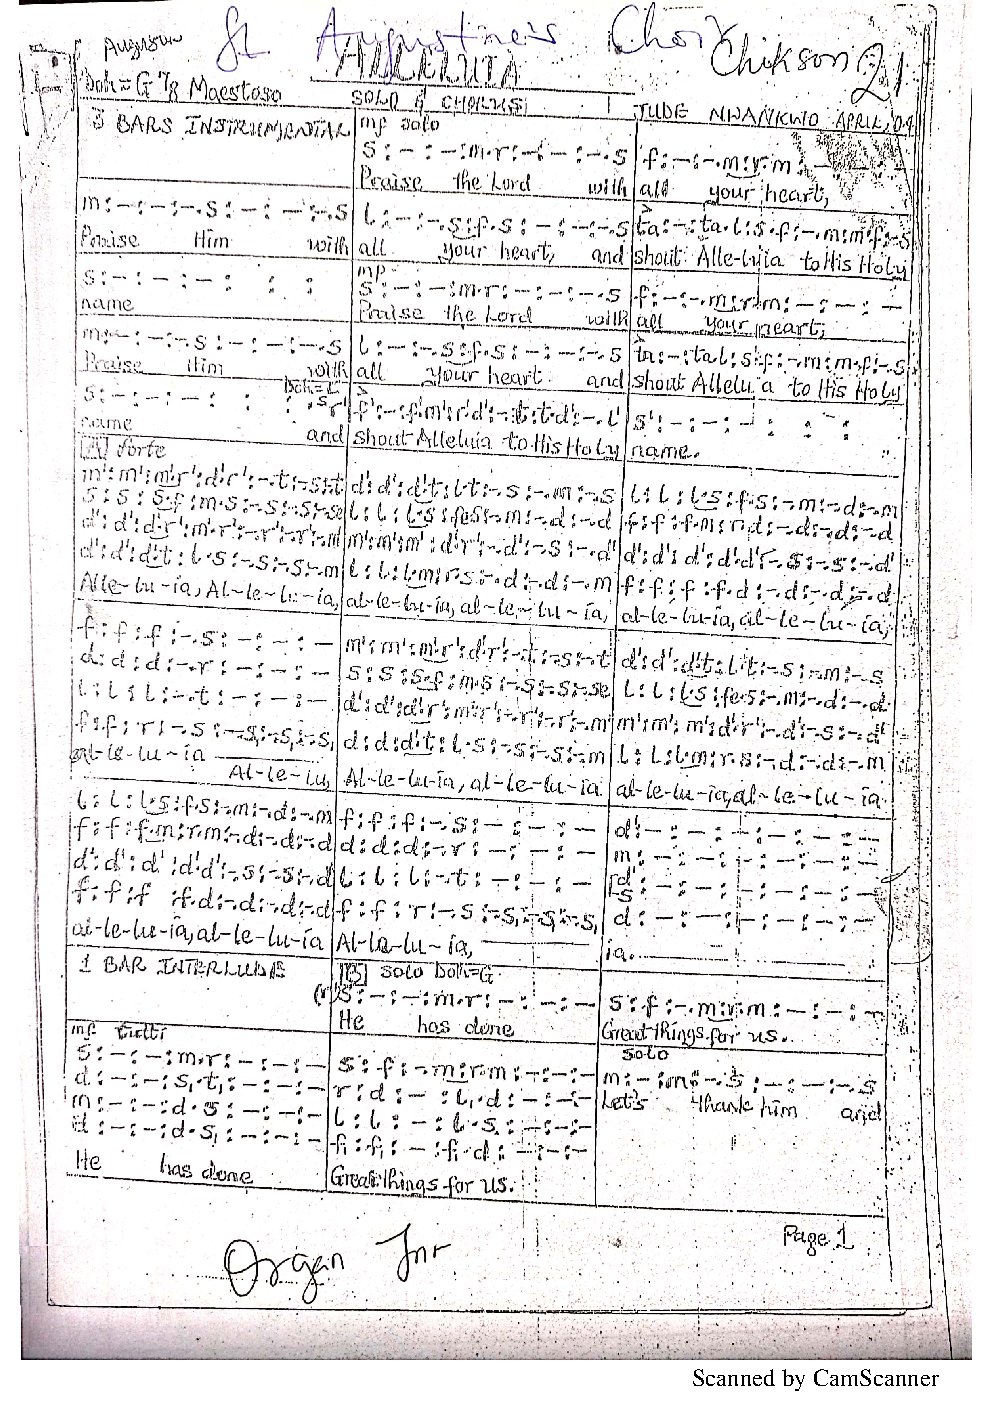 Augustine St. Augustine's Choir
ALLELUIA Chikson 21
Doh=G 7/8 Maestoso SOLO & CHORUS JUDE NWANKWO APRIL, 04
3 BARS INSTRUMENTAL mf solo
s : – : – : m.r : – : – : –.s f : – : –.m : r.m : –
Praise the Lord with all your heart,
m : – : – : –.s : – : – : –.s l : – : –.s : f.s : – : – : –.s ta : – : ta.l : s.f : –.m : m.f : –.s
Praise Him with all your heart, and shout Alle-luia to His Holy
s : – : – : – : : : mp s : – : – : m.r : – : – : –.s f : – : –.m : r.m : – : – : –
name Praise the Lord with all your heart,
m : – : – : –.s : – : – : –.s l : – : –.s : f.s : – : – : –.s ta : – : ta.l : s.f : –.m : m.f : –.s
Praise Him with all your heart and shout Alleluia to His Holy
s : – : – : – : : : f' : – : f'.m' : r'.d' : –.t : t.d' : –.l s' : – : – : – : : :
name and shout Alleluia to His Holy name.
[A] forte
m' : m' : m'.r' : d'.r' : –.t : –.s : t d' : d' : d'.t : l.t : –.s : –.m : –.s l : l : l.s : f.s : –.m : –.d : –.m
s : s : s.f : m.s : –.s : –.s : –.se l : l : l.s : fe.s : –.m : –.d : –.d f : f : f.m : r.d : –.d : –.d : –.d
d' : d' : d'.r' : m'.r' : –.r' : –.r' : –.m' m' : m' : m' : d'.r' : –.d' : –.s : –.d' d' : d' : d' : d'.d' : –.s : –.s : –.d'
d' : d' : d'.t : l.s : –.s : –.s : –.m l : l : l.m : r.s : –.d : –.d : –.m f : f : f : f.d : –.d : –.d : –.d
Alle-lu-ia, Al-le-lu-ia, al-le-lu-ia, al-le-lu-ia, al-le-lu-ia, al-le-lu-ia,
f : f : f : –.s : – : – : – m' : m' : m'.r' : d'.r' : –.t : –.s : –.t d' : d' : d'.t : l.t : –.s : –.m : –.s
d : d : d : –.r : – : – : – s : s : s.f : m.s : –.s : –.s : –.se l : l : l.s : fe.s : –.m : –.d : –.d
l : l : l : –.t : – : – : – d' : d' : d'.r' : m'.r' : –.r' : –.r' : –.m' m' : m' : m' : d'.r' : –.d' : –.s : –.d'
f : f : r : –.s : –.s, : –.s, : –.s, d : d : d.t : l.s : –.s : –.s : –.m l : l : l.m : r.s : –.d : –.d : –.m
al-le-lu-ia Al-le-lu, Al-le-lu-ia, al-le-lu-ia al-le-lu-ia, al-le-lu-ia
l : l : l.s : f.s : –.m : –.d : –.m f : f : f : –.s : – : – : – d' : – : – : – : – : – : –
f : f : f.m : r.m : –.d : –.d : –.d d : d : d : –.r : – : – : – m : – : – : – : – : – : –
d' : d' : d' : d'.d' : –.s : –.s : –.d l : l : l : –.t : – : – : – [d' s : – : – : – : – : – : –
f : f : f : f.d : –.d : –.d : –.d f : f : r : –.s : –.s, : –.s, : –.s, d : – : – : – : – : – : –
al-le-lu-ia, al-le-lu-ia Al-la-lu-ia, ia.
1 BAR INTERLUDE [B] SOLO Doh=G
(r')s : – : – : m.r : – : – : – s : f : –.m : r.m : – : – : –
He has done Great things for us.
mf tutti solo
s : – : – : m.r : – : – : – s : f : –.m : r.m : – : – : – m : – : m : –.s : – : – : –.s
d : – : – : s,.t, : – : – : – r : d : – : l,.d : – : – : – Let's thank him and
m : – : – : d.s : – : – : – l : l : – : l.s : – : – : –
d : – : – : d.s, : – : – : – f, : f, : – : f,.d : – : – : –
He has done Great things for us.
Page 1
Organ Inr
Scanned by CamScanner